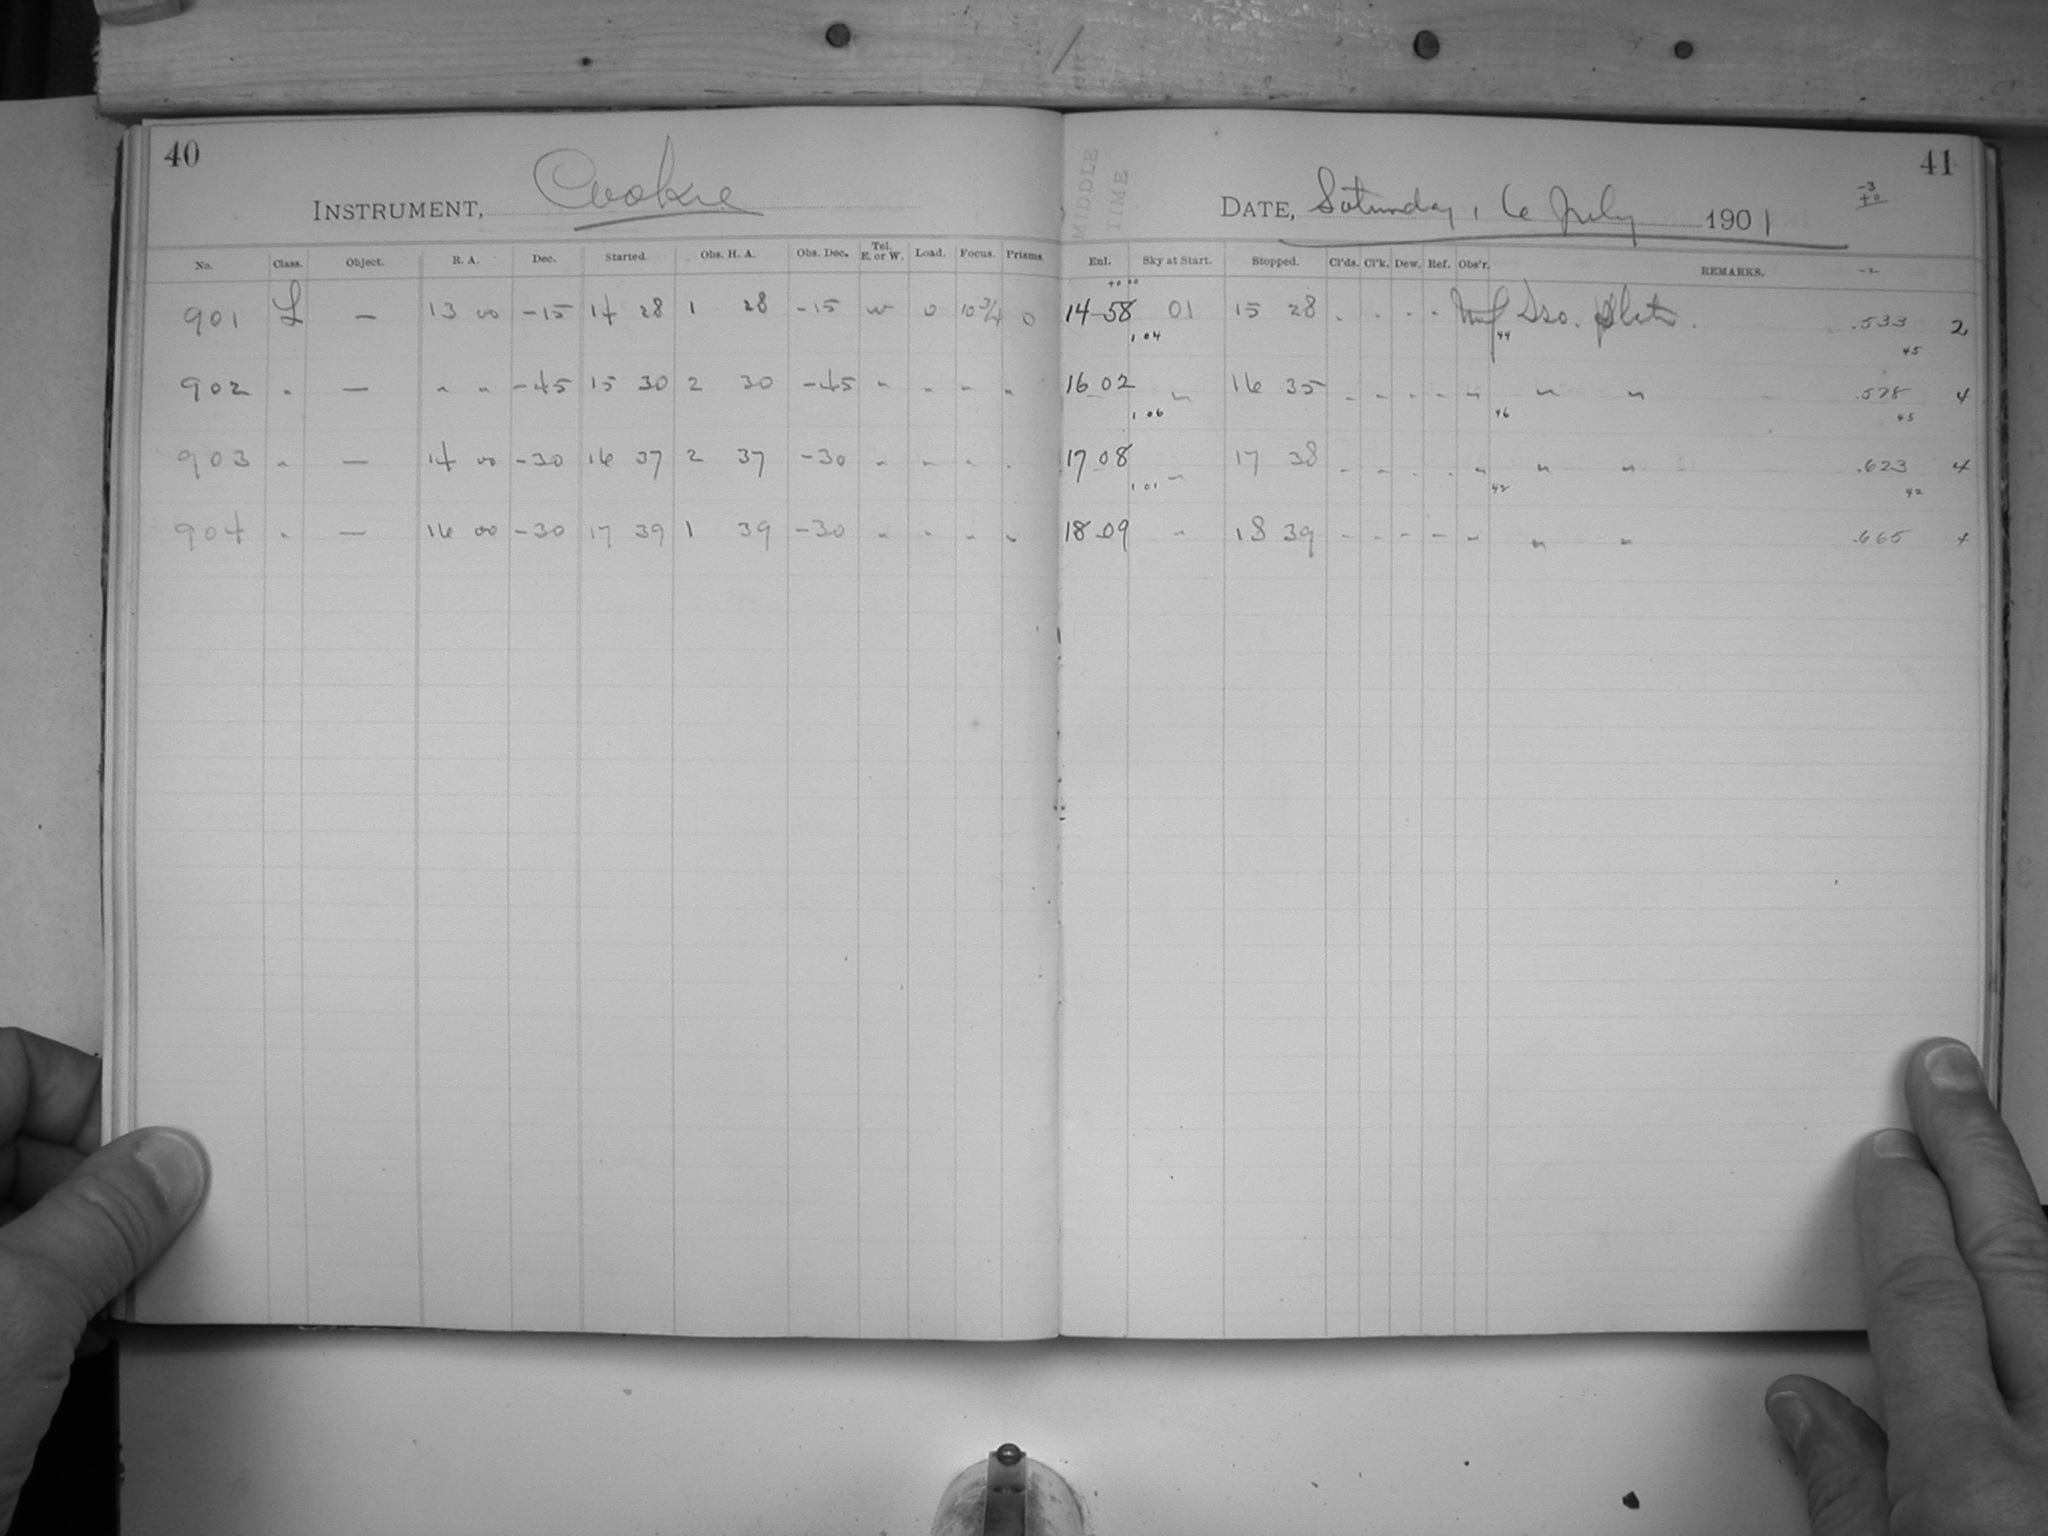 40
INSTRUMENT, Cooke
No. Class. Object. R. A. Dec. Started. Obs. H. A. Obs. Dec. Tel. E. or W. Load. Focus. Prisms.
901 L — 13 00 -15 14 28 1 28 -15 w 0 10 3/4 0
902 " — " " -45 15 30 2 30 -45 " " " "
903 " — 14 00 -30 16 37 2 37 -30 " " " "
904 " — 16 00 -30 17 39 1 39 -30 " " " "
41
MIDDLE TIME
DATE, Saturday, 6 July 1901
-3
+0
Enl. Sky at Start. Stopped. Cl'ds. Cl'k. Dew. Ref. Obs'r. REMARKS. -2
14-58 01 15 28 . . . . .533 2
1 04 44 45
16 02 " 16 35 " " " " " " " .578 4
1 06 46 45
17 08 " 17 38 " " " " " " " .623 4
1 01 42 42
18 09 " 18 39 " " " " " " " .665 4